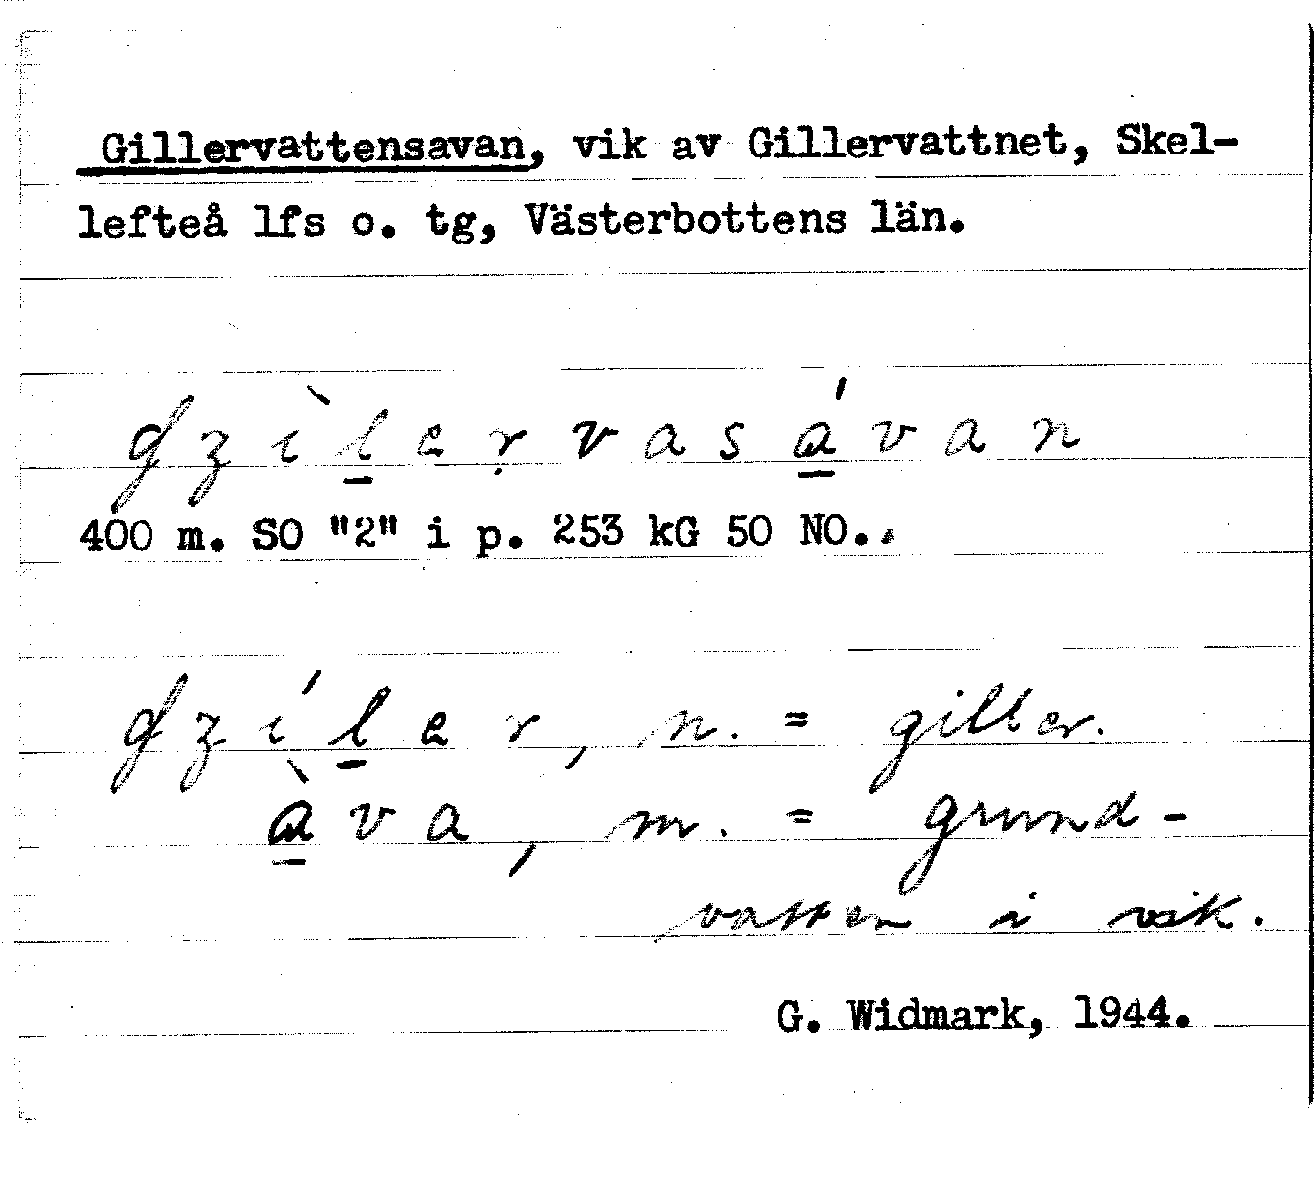 Gillervattensavan, vik av Gillervattnet, Skel-
lefteå lfs o. tg, Västerbottens län.
ʠʒìl̲erṿasá̲van
400 m. SO "2" i p. 253 kG 50 NO..
ʠʒíl̲er, n. = giller.
à̲va, m. = grund-
vatten i vik.
G. Widmark, 1944.